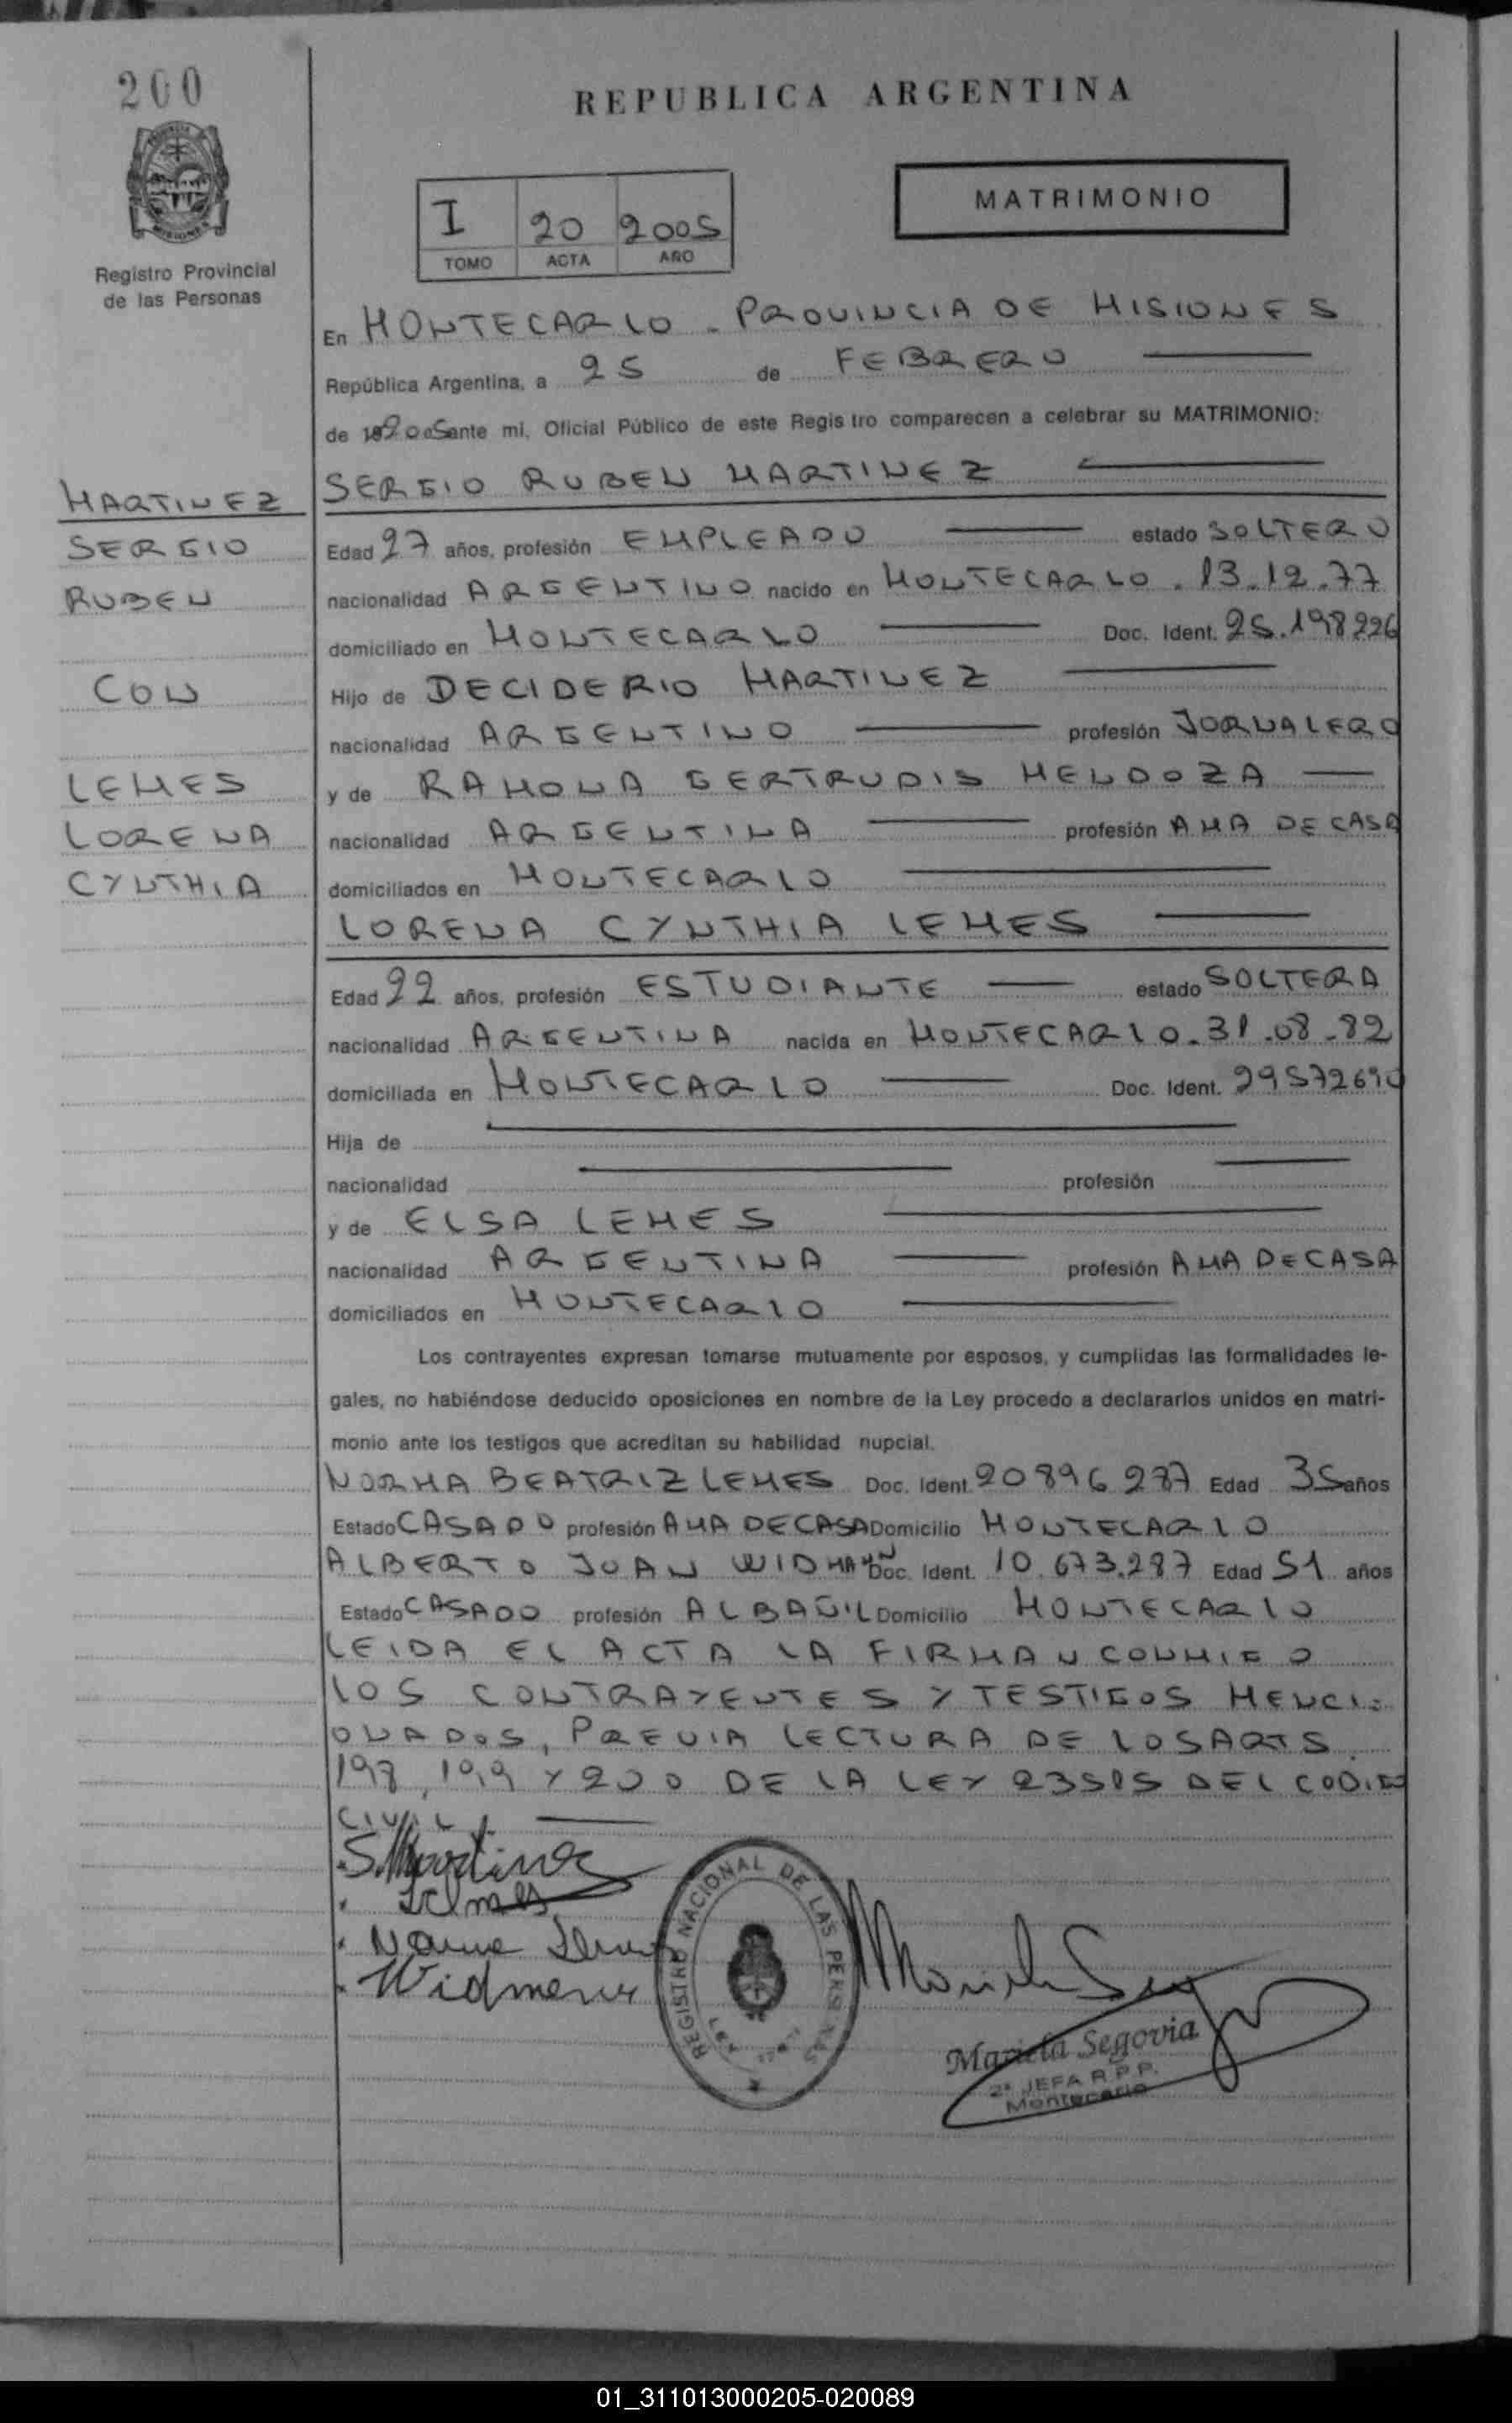 200
REPUBLICA ARGENTINA
MATRIMONIO
I 20 2005
TOMO ACTA AÑO
Registro Provincial
de las Personas
En MONTECARLO - PROVINCIA DE MISIONES
República Argentina, a 25 de FEBRERO
de 2005 ante mi, Oficial Público de este Registro comparecen a celebrar su MATRIMONIO:
MARTINEZ
SERGIO
RUBEN
CON
LEMES
LORENA
CYNTHIA
SERGIO RUBEN MARTINEZ
Edad 27 años, profesión EMPLEADO estado SOLTERO
nacionalidad ARGENTINO nacido en MONTECARLO . 13.12.77
domiciliado en MONTECARLO Doc. Ident. 25.198226
Hijo de DECIDERIO MARTINEZ
nacionalidad ARGENTINO profesión JORNALERO
y de RAMONA GERTRUDIS MENDOZA
nacionalidad ARGENTINA profesión AMA DE CASA
domiciliados en MONTECARLO
LORENA CYNTHIA LEMES
Edad 22 años, profesión ESTUDIANTE estado SOLTERA
nacionalidad ARGENTINA nacida en MONTECARLO. 31.08.82
domiciliada en MONTECARLO Doc. Ident. 29572690
Hija de
nacionalidad profesión
y de ELSA LEMES
nacionalidad ARGENTINA profesión AMA DE CASA
domiciliados en MONTECARLO
Los contrayentes expresan tomarse mutuamente por esposos, y cumplidas las formalidades le-
gales, no habiéndose deducido oposiciones en nombre de la Ley procedo a declararlos unidos en matri-
monio ante los testigos que acreditan su habilidad nupcial.
NORMA BEATRIZ LEMES Doc. Ident. 20896287 Edad 35 años
Estado CASADO profesión AMA DE CASA Domicilio MONTECARLO
ALBERTO JUAN WIDMAYN Doc. Ident. 10.673.287 Edad 51 años
Estado CASADO profesión ALBAÑIL Domicilio MONTECARLO
LEIDA EL ACTA LA FIRMAN CONMIGO
LOS CONTRAYENTES Y TESTIGOS MENCI-
ONADOS, PREVIA LECTURA DE LOS ARTS.
197, 199 Y 200 DE LA LEY 23515 DEL CODIGO
CIVIL
S. Martinez
Lemes
Norma Lemes
REGISTRO NACIONAL DE LAS PERSONAS
Mariela Segovia
2ª JEFA R.P.P.
Montecarlo
01_311013000205-020089